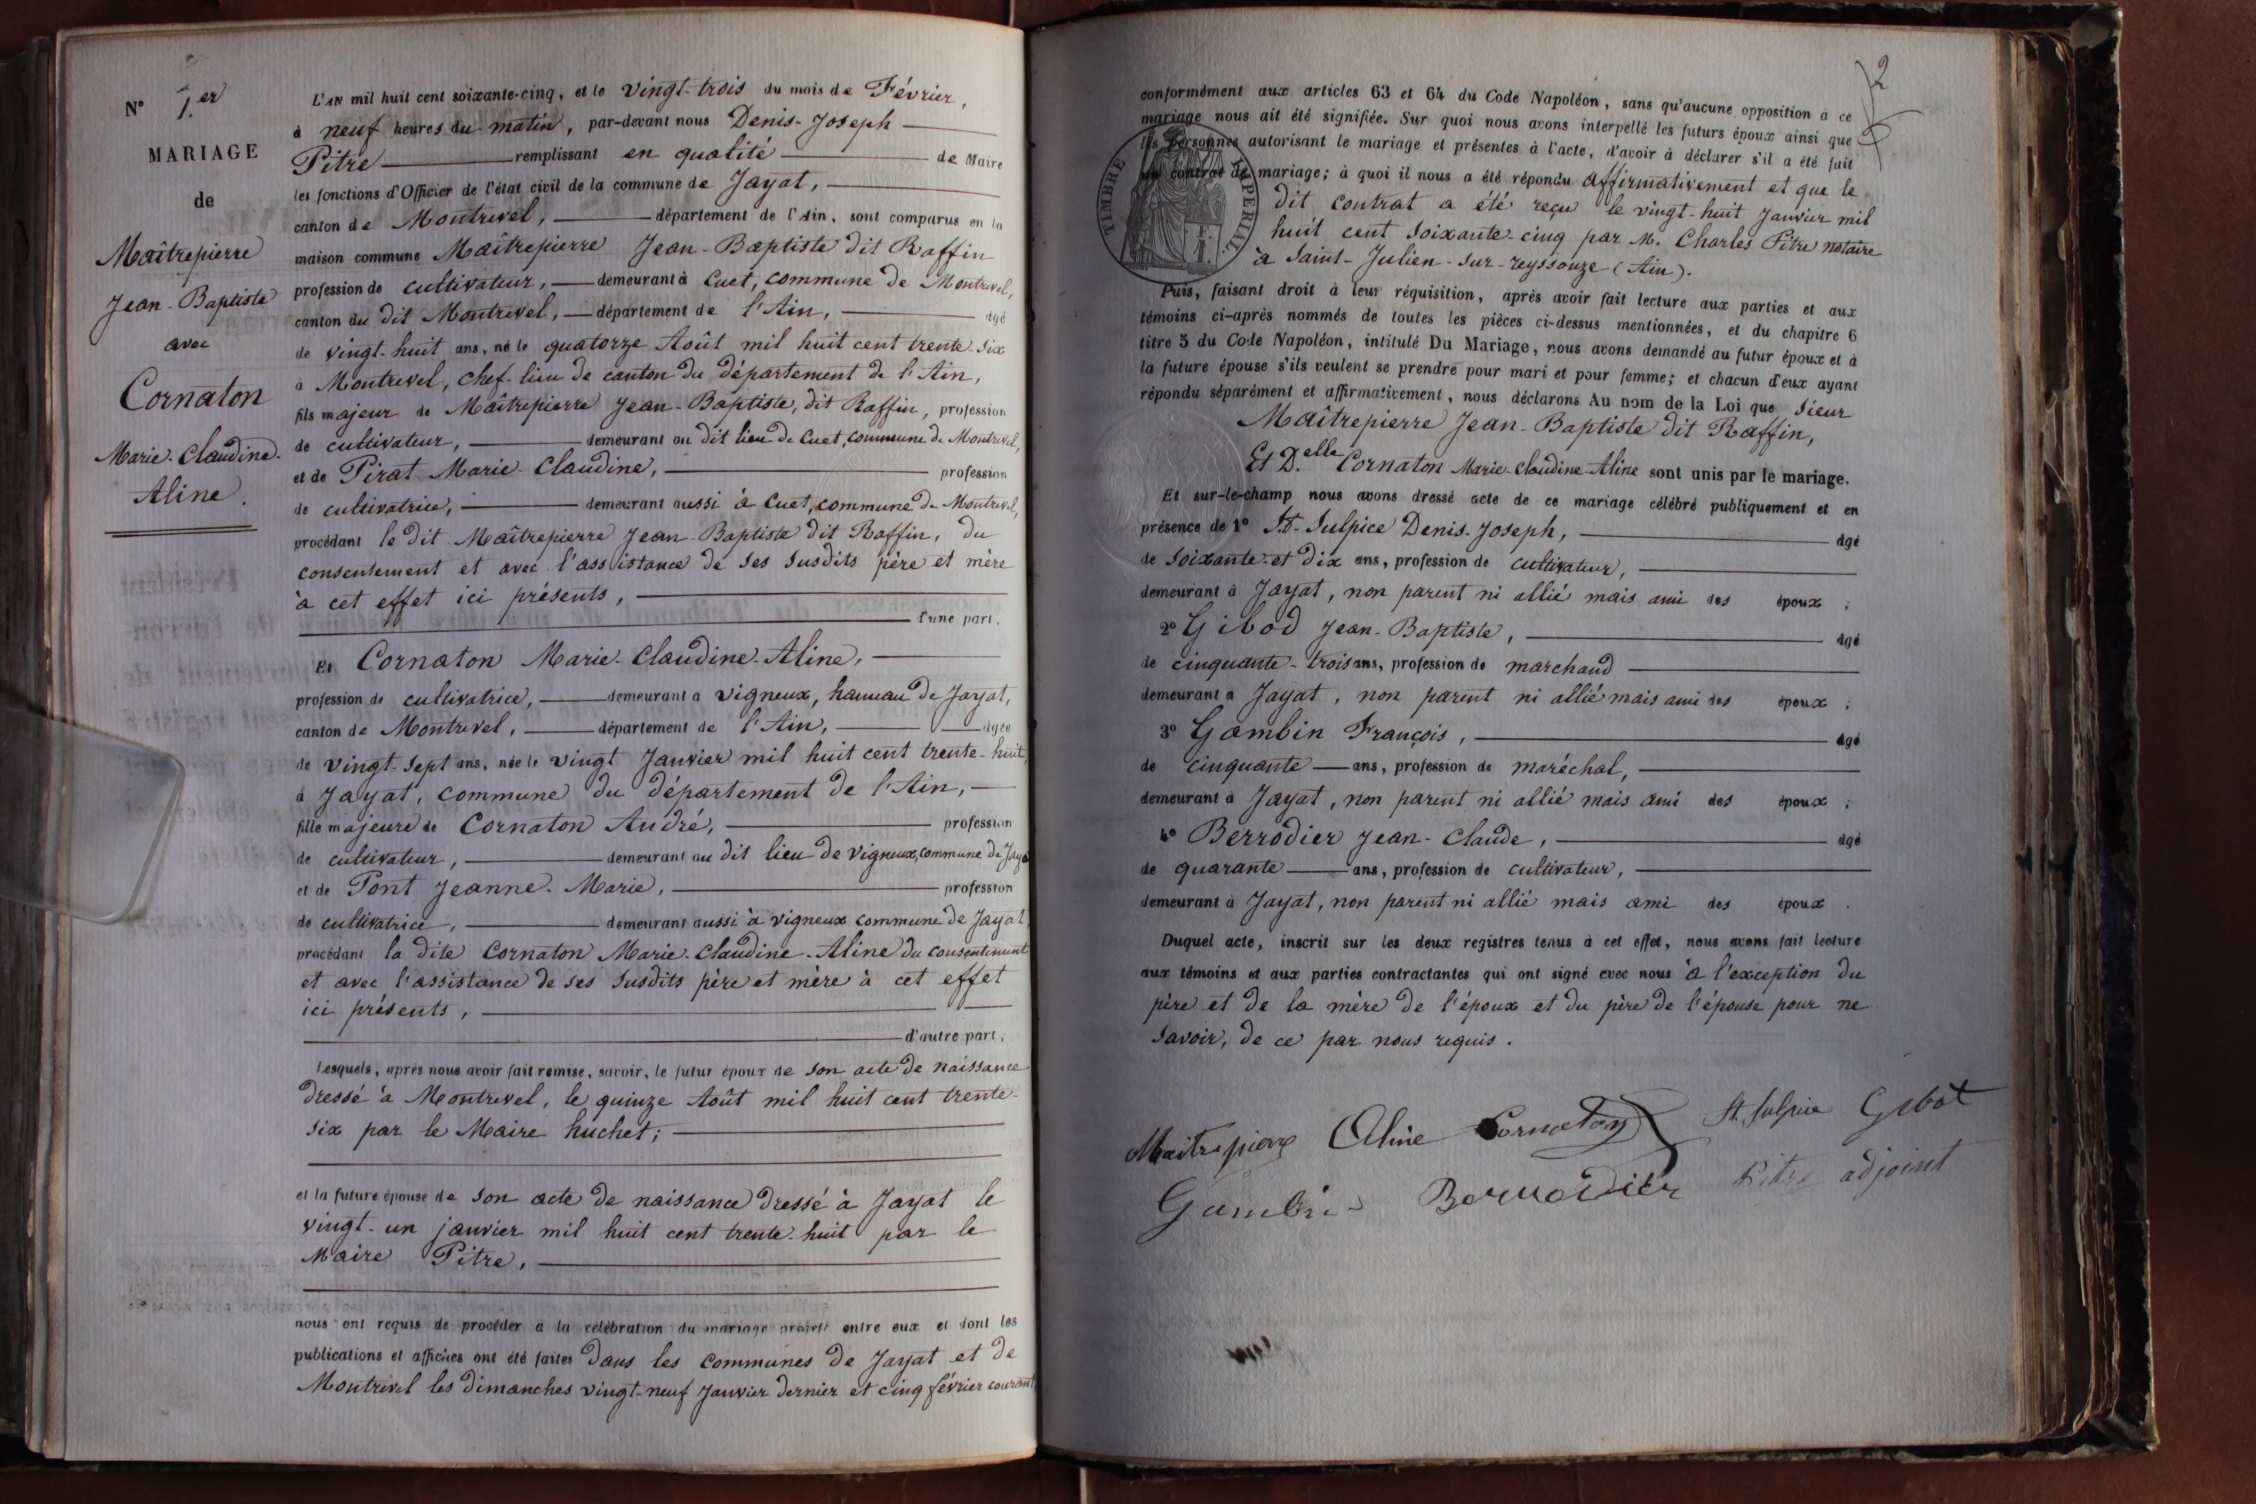 N° 1.er
MARIAGE
de
Maîtrepierre
Jean-Baptiste
avec
Cornaton
Marie-Claudine-
Aline.
L'AN mil huit cent soixante-cinq, et le vingt-trois du mois de Février,
à neuf heures du matin, par-devant nous Denis-Joseph
Pitre remplissant en qualité de Maire
les fonctions d'Officier de l'état civil de la commune de Jayat,
canton de Montrevel, département de l'Ain, sont comparus en la
maison commune Maîtrepierre Jean-Baptiste dit Raffin
profession de cultivateur, demeurant à Cuet, commune de Montrevel,
canton du dit Montrevel, département de l'Ain, âgé
de vingt-huit ans, né le quatorze Août mil huit cent trente-six
à Montrevel, chef-lieu de canton du département de l'Ain,
fils majeur de Maîtrepierre Jean-Baptiste, dit Raffin, profession
de cultivateur, demeurant au dit lieu de Cuet, commune de Montrevel,
et de Pirat Marie-Claudine, profession
de cultivatrice, demeurant aussi à Cuet, commune de Montrevel,
procédant le dit Maîtrepierre Jean-Baptiste dit Raffin, du
consentement et avec l'assistance de ses susdits père et mère
à cet effet ici présents,
d'une part.
Et Cornaton Marie-Claudine-Aline,
profession de cultivatrice, demeurant à Vigneux, hameau de Jayat,
canton de Montrevel, département de l'Ain, âgée
de vingt-sept ans, née le vingt Janvier mil huit cent trente-huit,
à Jayat, commune du département de l'Ain,
fille majeure de Cornaton André, profession
de cultivateur, demeurant au dit lieu de Vigneux, commune de Jaya
et de Pont Jeanne-Marie, profession
de cultivatrice, demeurant aussi à Vigneux commune de Jayat,
procédant la dite Cornaton Marie-Claudine-Aline du consentement
et avec l'assistance de ses susdits père et mère à cet effet
ici présents,
d'autre part.
Lesquels, après nous avoir fait remise, savoir, le futur époux de son acte de naissance
dressé à Montrevel, le quinze Août mil huit cent trente-
six par le Maire huchet;
et la future épouse de son acte de naissance dressé à Jayat le
vingt-un janvier mil huit cent trente-huit par le
Maire Pitre,
nous ont requis de procéder à la célébration du mariage projeté entre eux et dont les
publications et affiches ont été faites dans les communes de Jayat et de
Montrevel les dimanches vingt-neuf Janvier dernier et cinq février courant
2
conformément aux articles 63 et 64 du Code Napoléon, sans qu'aucune opposition à ce
mariage nous ait été signifiée. Sur quoi nous avons interpellé les futurs époux ainsi que
les personnes autorisant le mariage et présentes à l'acte, d'avoir à déclarer s'il a été fait
un contrat de mariage; à quoi il nous a été répondu affirmativement et que le
dit contrat a été reçu le vingt-huit Janvier mil
huit cent soixante-cinq par M. Charles Pitre notaire
à Saint-Julien-sur-reyssouze (Ain).
TIMBRE IMPERIAL
Puis, faisant droit à leur réquisition, après avoir fait lecture aux parties et aux
témoins ci-après nommés de toutes les pièces ci-dessus mentionnées, et du chapitre 6
titre 5 du Code Napoléon, intitulé Du Mariage, nous avons demandé au futur époux et à
la future épouse s'ils veulent se prendre pour mari et pour femme; et chacun d'eux ayant
répondu séparément et affirmativement, nous déclarons Au nom de la Loi que Sieur
Maîtrepierre Jean-Baptiste dit Raffin,
Et D.elle Cornaton Marie-Claudine-Aline sont unis par le mariage.
Et sur-le-champ nous avons dressé acte de ce mariage célébré publiquement et en
présence de 1° St-Sulpice Denis-Joseph, âgé
de soixante-et dix ans, profession de cultivateur,
demeurant à Jayat, non parent ni allié mais ami des époux ;
2° Gibod Jean-Baptiste, âgé
de cinquante-trois ans, profession de marchand
demeurant à Jayat, non parent ni allié mais ami des époux ;
3° Gambin François, âgé
de cinquante ans, profession de maréchal,
demeurant à Jayat, non parent ni allié mais ami des époux ;
4° Berrodier Jean-Claude, âgé
de quarante ans, profession de cultivateur,
demeurant à Jayat, non parent ni allié mais ami des époux .
Duquel acte, inscrit sur les deux registres tenus à cet effet, nous avons fait lecture
aux témoins et aux parties contractantes qui ont signé avec nous à l'exception du
père et de la mère de l'époux et du père de l'épouse pour ne
savoir, de ce par nous requis.
Maitrepierre Aline Cornaton St. Sulpice Gibot
Gambin Berrodier Pitre adjoint